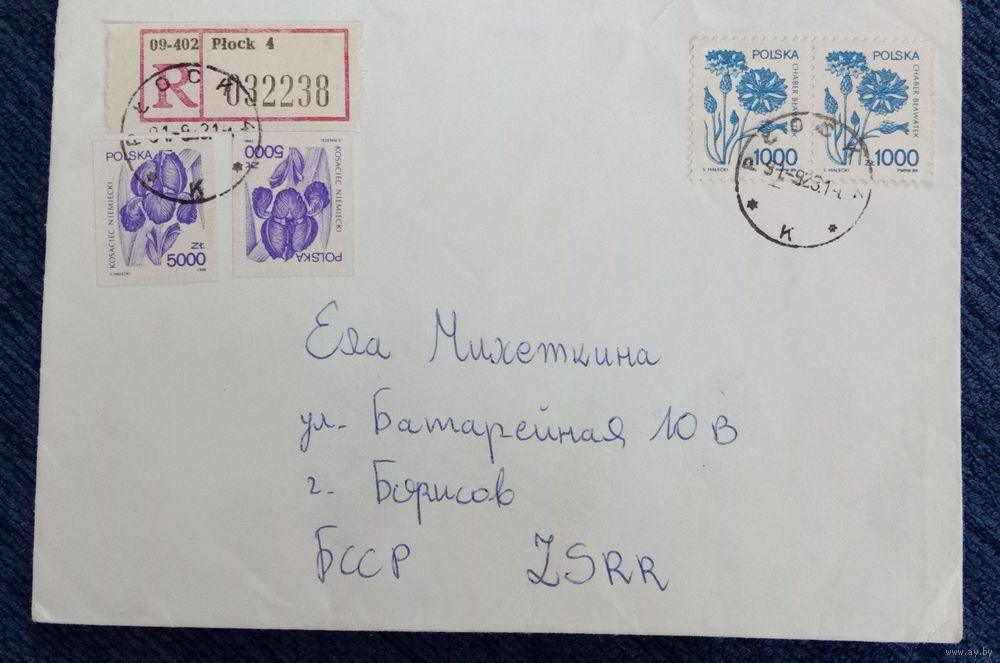 09-402 Płock 4
R 032238
POLSKA
KOSACIEC NIEMIECKI
5000 ZŁ
5000 ZŁ
KOSACIEC NIEMIECKI
S. MAŁECKI
POLSKA
POLSKA
CHABER BŁAWATEK
1000
S. MAŁECKI
POLSKA
CHABER BŁAWATEK
1000
S. MAŁECKI
PŁOCK 4
K
PŁOCK 4
K
Ела Михеткина
ул. Батарейная 10 В
г. Борисов
БССР ZSRR
www.ay.by